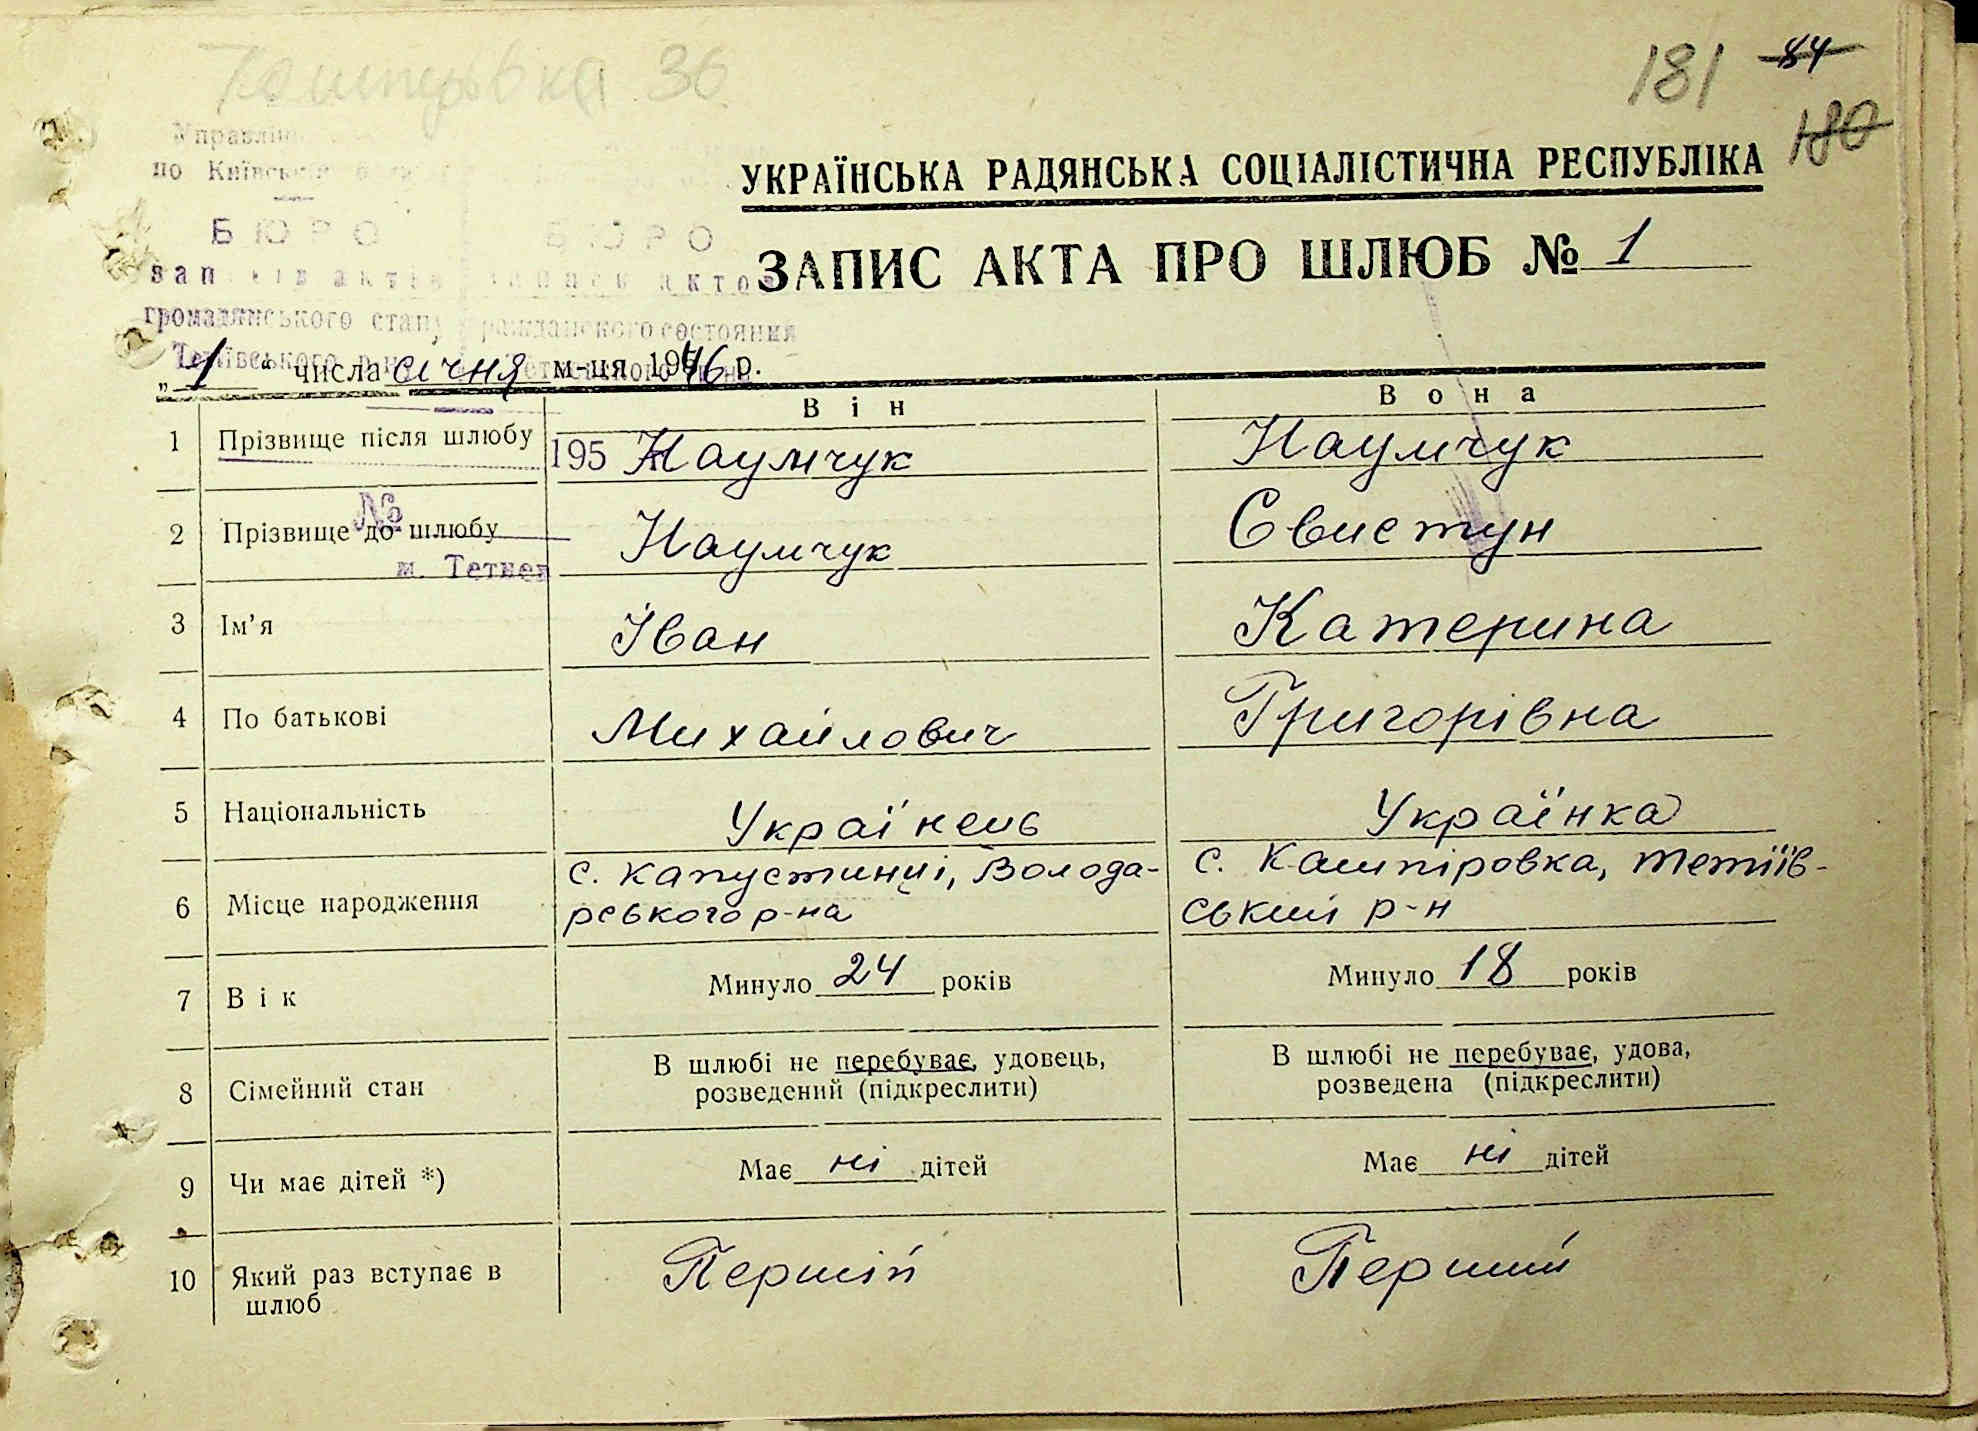 36
181 84
180
Управлін
по Київській
БЮРО БЮРО
УКРАЇНСЬКА РАДЯНСЬКА СОЦІАЛІСТИЧНА РЕСПУБЛІКА
ЗАПИС АКТА ПРО ШЛЮБ № 1
актів
громадянського стану гражданского состояния
„1“ числа січня м-ця 1946 р.
Він Вона
1 Прізвище після шлюбу 195 Наумчук Наумчук
№
2 Прізвище до шлюбу Наумчук Свистун
м. Тетиев
3 Ім’я Іван Катерина
4 По батькові Михайлович Григорівна
5 Національність Українець Українка
6 Місце народження с. Капустинці, Волода-
рського р-на
с. Кашпіровка, Тетіїв-
ський р-н
7 Вік Минуло 24 років Минуло 18 років
8 Сімейний стан В шлюбі не перебуває, удовець,
розведений (підкреслити)
В шлюбі не перебуває, удова,
розведена (підкреслити)
9 Чи має дітей *) Має ні дітей Має ні дітей
10 Який раз вступає в
шлюб
Першій Перший